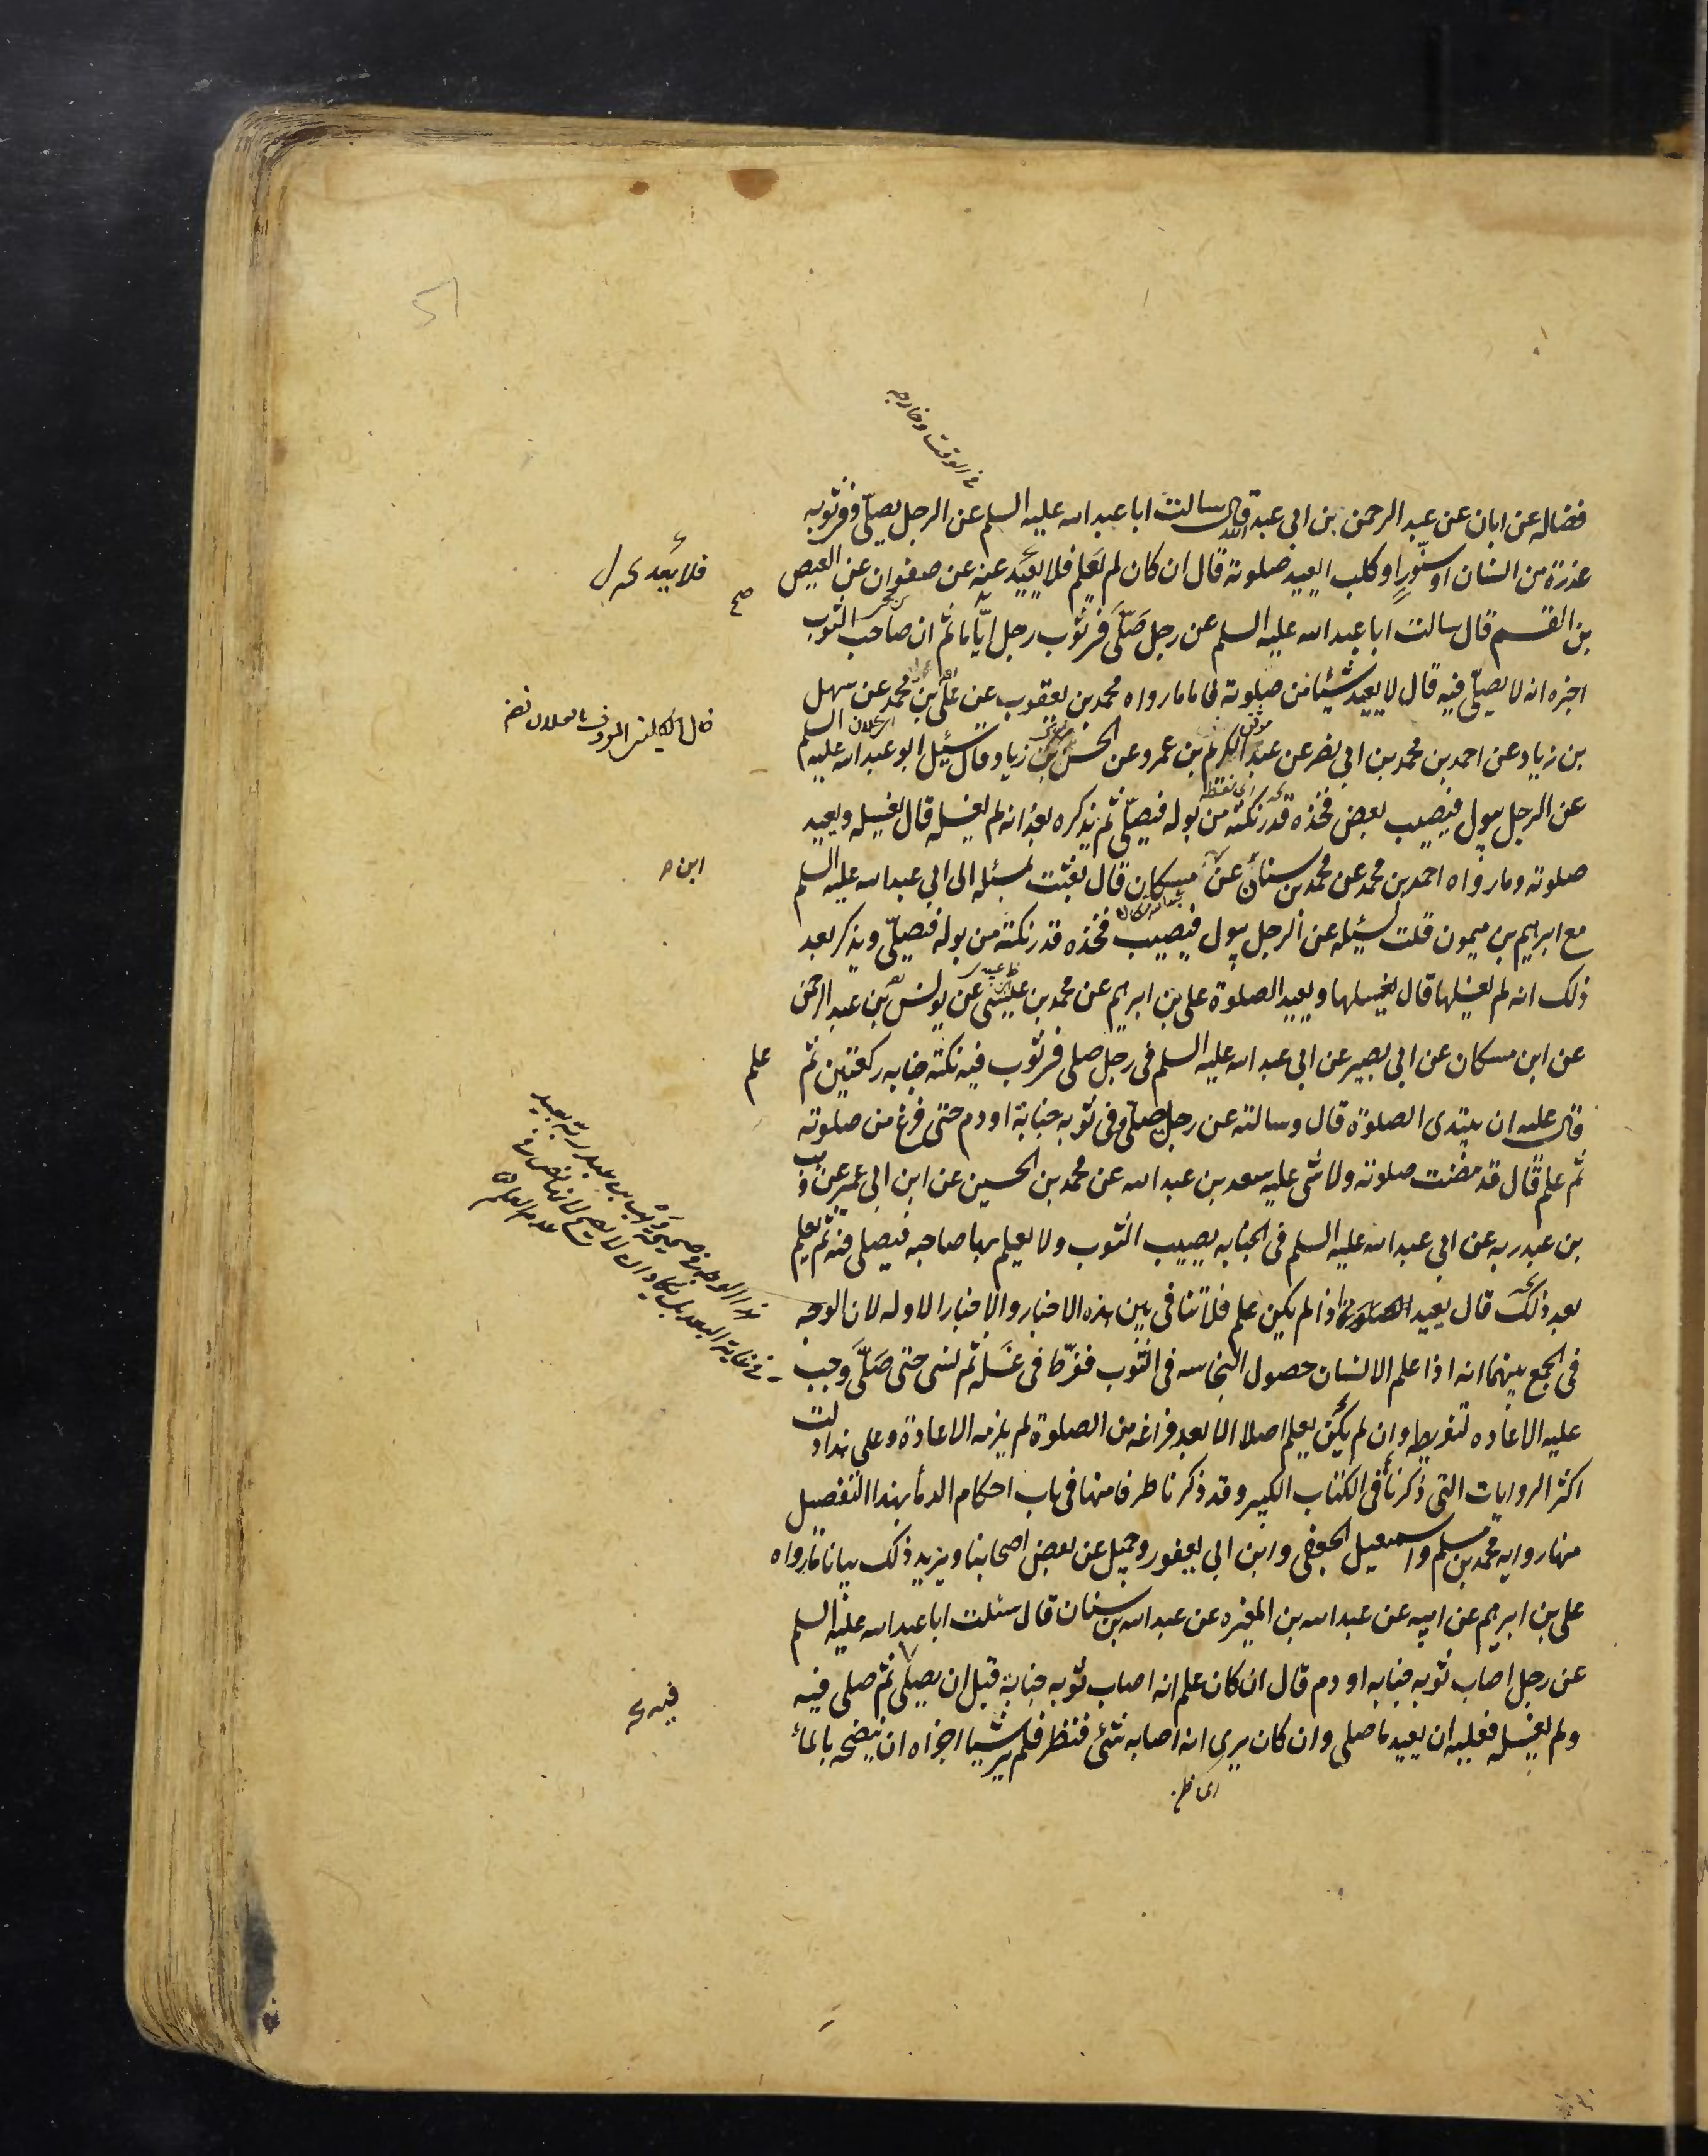 فضاله عن ابان عن عبد الرحمن بن ابي عبد الله قال سالت ابا عبد الله عليه السلم عن الرجل يصلّي وفي ثوبه
عذرة من انسان او سنّور او كلب ايعيد صلوته قال ان كان لم يعلم فلا يعيد عنه عن صفوان عن العيص
بن القسم قال سالت ابا عبد الله عليه السلم عن رجل صَلّى في ثوب رجل ايّاما ثم ان صاحب الثوب
اخبره انه لا يصلّي فيه قال لا يعيد شيئا من صلوته فاما ما رواه محمد بن يعقوب عن علي بن محمد عن سهل
بن زياد عن احمد بن محمد بن ابي نصر عن عبد الكريم بن عمرو عن الحسن بن زياد قال سئيل ابو عبد الله عليه السلم
عن الرجل يبول فيصيب بعض فخذه قدر نكتة من بوله فيصلّي ثم يذكره بعد انه لم يغسله قال يغسله ويعيد
صلوته وما رواه احمد بن محمد عن محمد بن سنان عن مسكان قال بعثت بمسئله الى ابي عبد الله عليه السلم
مع ابرهيم بن ميمون قلت سئيله عن الرجل يبول فيصيب فخذه قدر نكتة من بوله فيصلّي ويذكر بعد
ذلك انه لم يغسلها قال يغسلها ويعيد الصلوة علي بن ابرهيم عن محمد بن عيسى عن يونس بن عبد الرحمن
عن ابن مسكان عن ابي بصير عن ابي عبد الله عليه السلم في رجل صلى في ثوب فيه نكتة جنابه ركعتين ثم
علم
قال عليه ان يبتدى الصلوة قال وسالته عن رجل صلى وفي ثوبه جنابة او دم حتى فرغ من صلوته
ثم علم قال قد مضت صلوته ولا شى عليه سعد بن عبد الله عن محمد بن الحسين عن ابن ابي عمير عن وهب
بن عبد ربه عن ابي عبد الله عليه السلم في الجنابه يصيب الثوب ولا يعلم بها صاحبه فيصلى فيه ثم يعلم
بعد ذلك قال يعيد اذا لم يكن علم فلا تنافى بين هذه الاخبار والاخبار الاوله لان الوجه
فى الجمع بينهما انه اذا علم الانسان حصول النجاسه فى الثوب ففرّط فى غسله ثم نسى حتى صَلّى وجب
عليه الاعاده لتفريطه وان لم يكن يعلم اصلا الا بعد فراغه من الصلوة لم يلزمه الاعادة وعلى هذا دلت
اكثر الروايات التي ذكرنا في الكتاب الكبير وقد ذكرنا طرفا منها في باب احكام الدماء بهذا التفصيل
منها روايه محمد بن مسلم واسمعيل الجعفي وابن ابي يعفور وجميل عن بعض اصحابنا ويزيد ذلك بيانا ما رواه
علي بن ابرهيم عن ابيه عن عبد الله بن المغيره عن عبد الله بن سنان قال سئلت ابا عبد الله عليه السلم
عن رجل اصاب ثوبه جنابه او دم قال ان كان علم انه اصاب ثوبه جنابة قبل ان يصلي ثم صلى فيه
ولم يغسله فعليه ان يعيد ما صلى وان كان يرى انه اصابه شئ فنظر فلم ير شيئا اجزاه ان ينضحه بالماء
في الوقت وخارجه
فلا يعد
صح
ابن
فيه